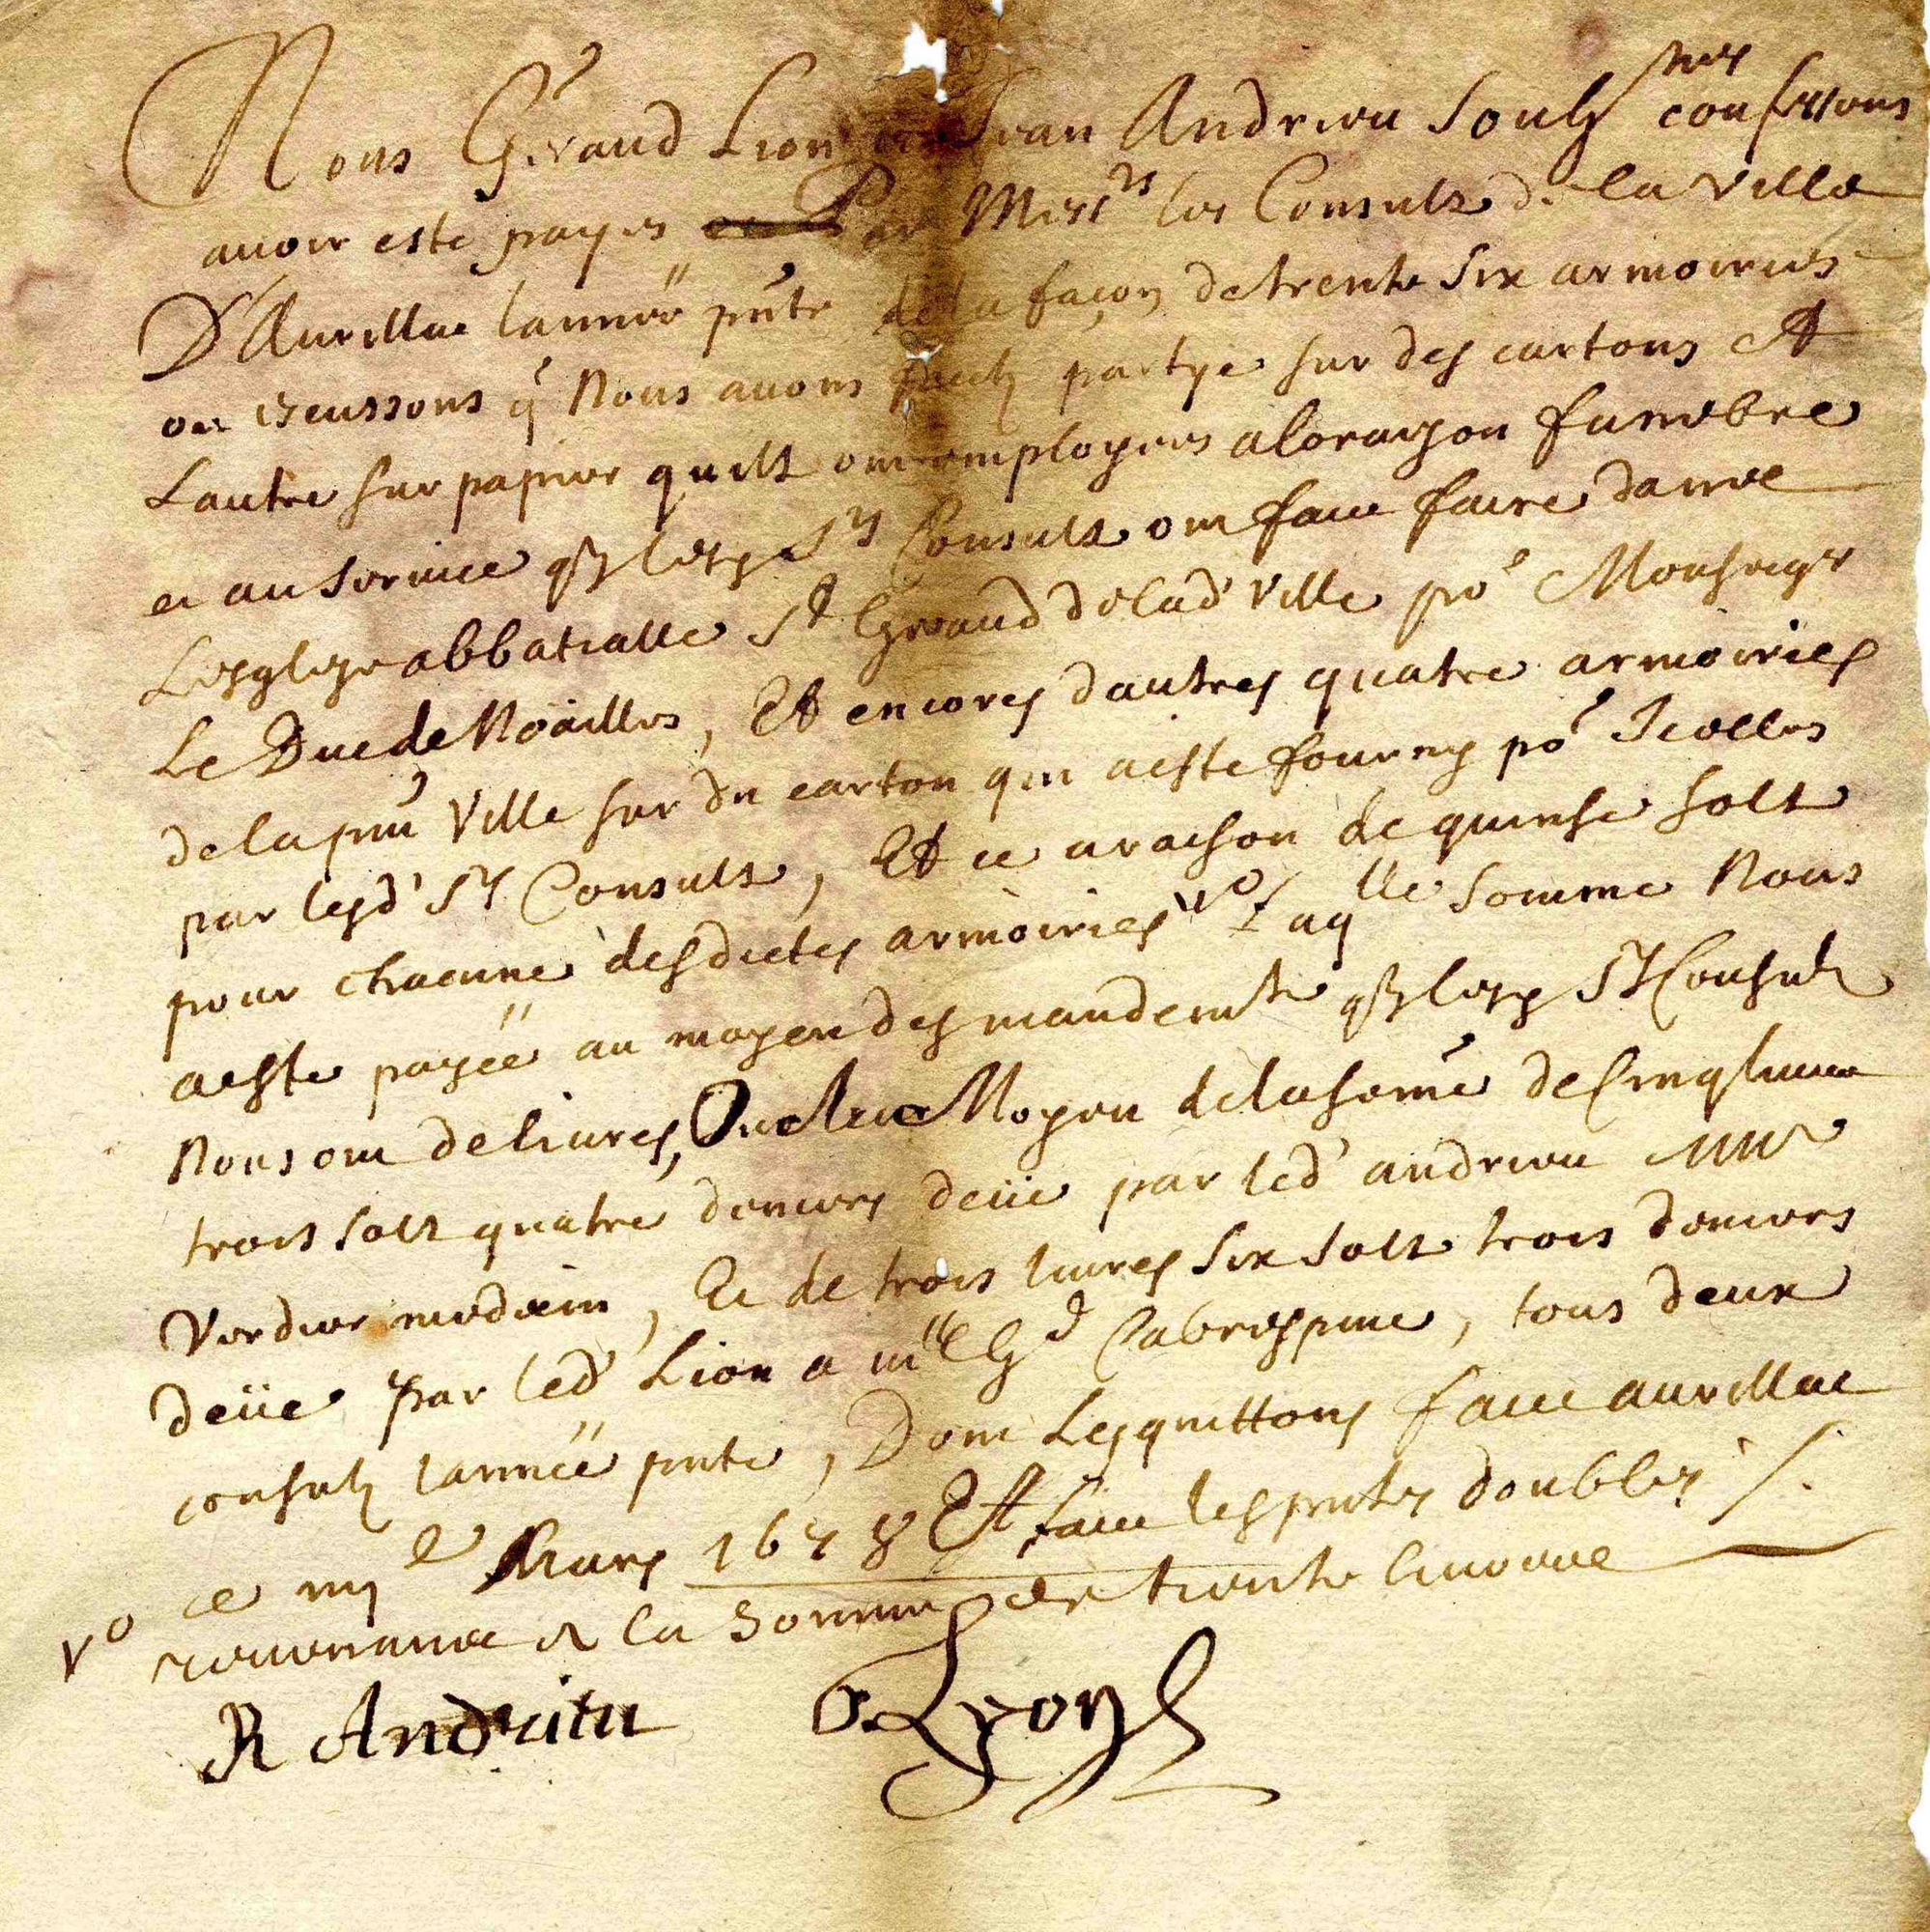 Nous Giraud Lion et Jean Andrieu soubz nés confessons
avoir esté payés Par Messrs les Consulz de la ville
D'Aurillac lannéé pnte de la façon de trente six armoiries
ou escussons q' Nous avons faictz partye sur des cartons Et
Lautre sur papier quilz ont employés a loraison funebre
et au service q lesd Srs Consulz ont faict faire dans
Lesglize abbatialle St Geraud de lad' ville po' Monseigr
Le Duc de Noailles, Et encores dautres quatre armoiries
de la pnt' Ville sur du carton qui a esté fourny po' Icelles
par lesd' Srs Consulz, Et ce a raison de quinse solz
pour chacune desdictes armoiries Vo Laqlle somme Nous
a esté payéé au moyen des mandemts q lesd Srs Consulz
Nous ont delivres, Ou Moyen de la some de Cinq livres
trois solz quatre deniers deüe par led' andrieu
Verdier medecin, Et de trois livres six solz trois deniers
deüe par led' Lion a me Gd Cabrespine, tous deux
consulz lannéé pnte, Dont Les quittons faict a Aurillac
ce Mars 1678 Et faict les pntes doubles /.
Vo revenant a la somme de trente livres
R Andrieu G. Lyon